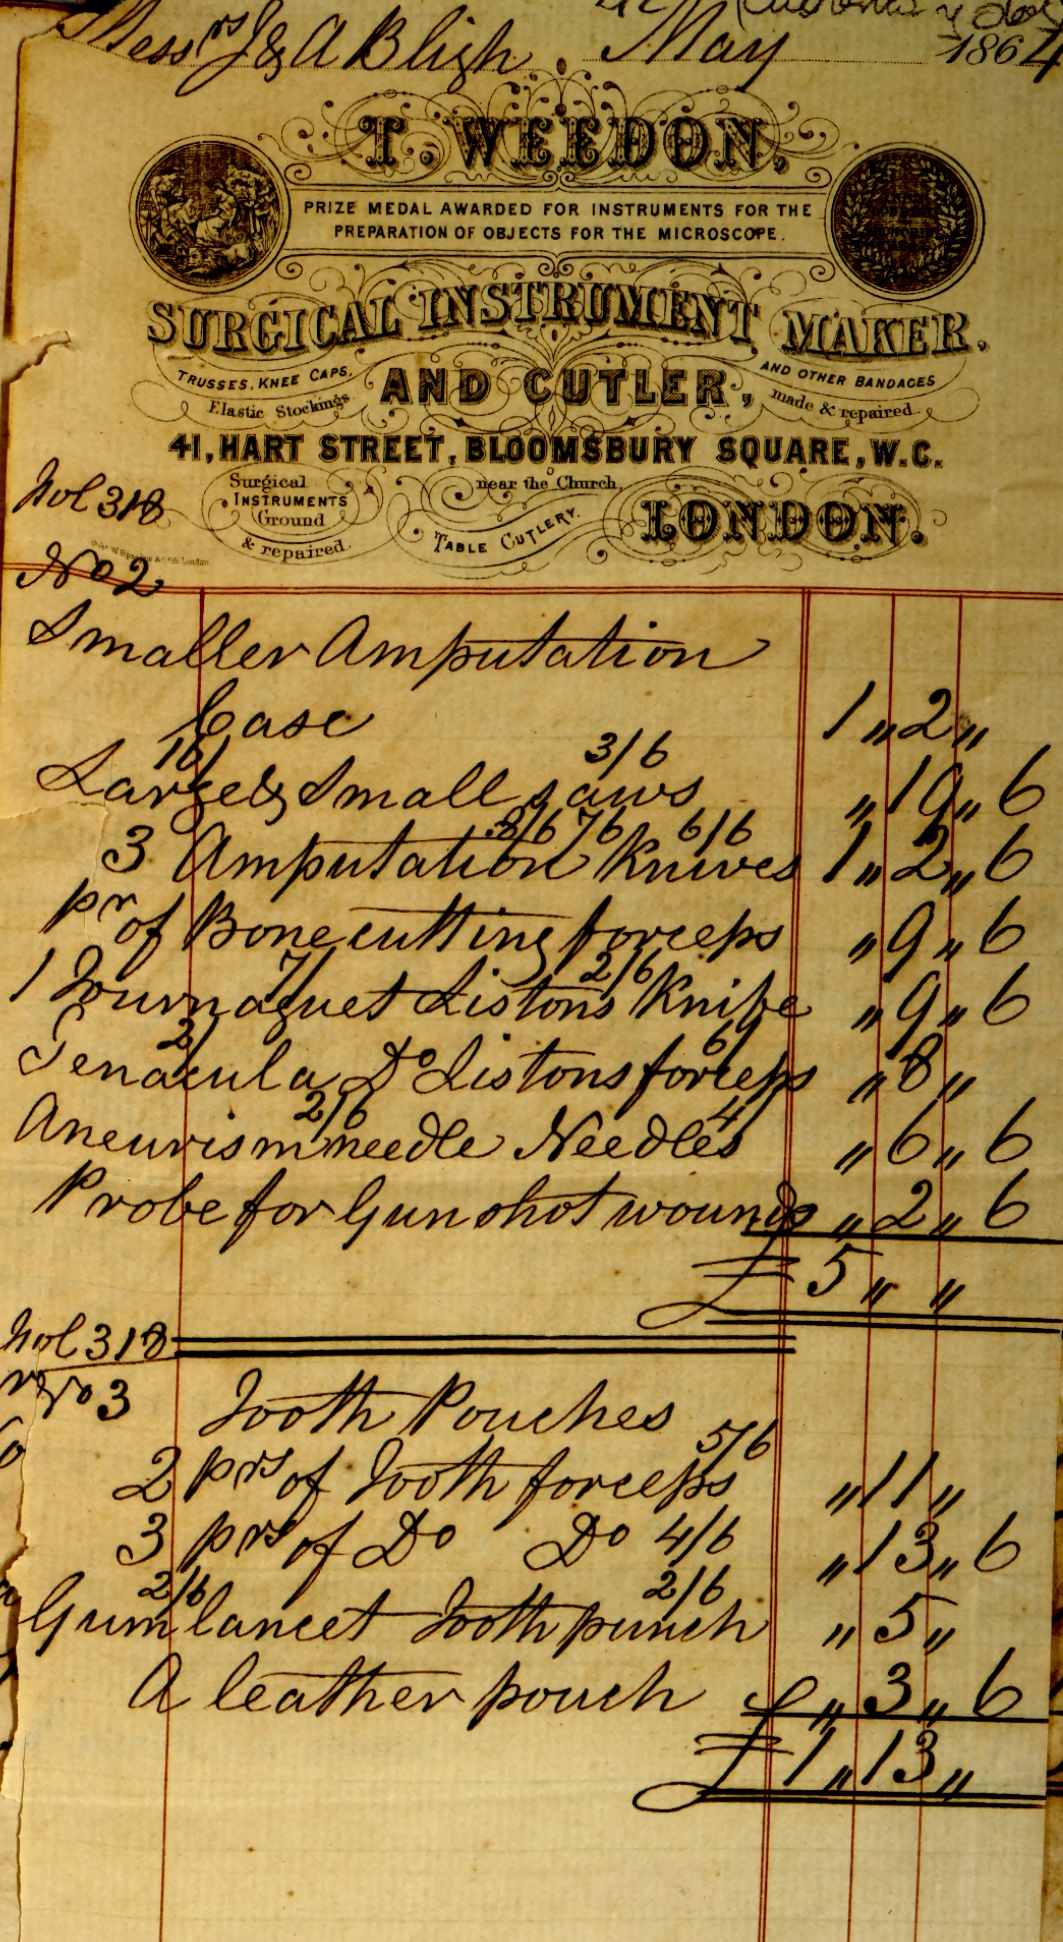 Messrs J & A Bligh . May 1864
T. WEEDON,
PRIZE MEDAL AWARDED FOR INSTRUMENTS FOR THE
PREPARATION OF OBJECTS FOR THE MICROSCOPE.
SURGICAL INSTRUMENT MAKER.
TRUSSES, KNEE CAPS,
Elastic Stockings
AND CUTLER,
AND OTHER BANDAGES
made & repaired
41, HART STREET, BLOOMSBURY SQUARE, W.C.
near the Church,
Surgical
INSTRUMENTS
Ground
& repaired.
TABLE CUTLERY.
LONDON.
318
No 2
Smaller Amputation
Case 1 " 2 "
16/ 3/6
Large & Small saws " 19 " 6
8/6 7/6 6/6
3 Amputation Knives 1 " 2 " 6
pr of Bone cutting forceps " 9 " 6
7/ 2/6
1 Tournaquet Listons Knife " 9 " 6
2/ 6/
Tenacula Do Listons forceps " 8 "
2/6 4/
Aneurism needle Needles " 6 " 6
Probe for Gun shot wounds " 2 " 6
£ 5 " "
318
No 3
Tooth Pouches
5/6
2 prs of Tooth forceps " 11 "
3 prs of Do Do 4/6 " 13 " 6
2/6 2/6
Gum lancet Tooth punch " 5 "
A leather pouch " 3 " 6
£ 1 " 13 "